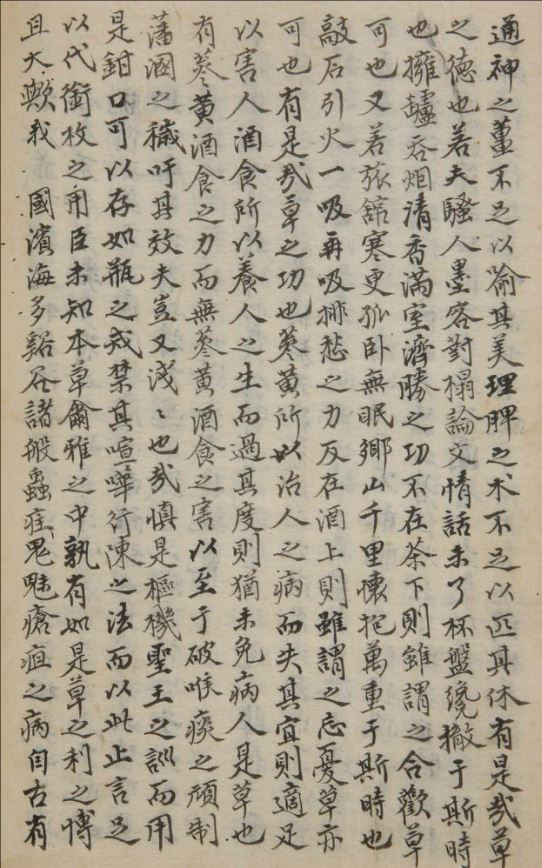 通神之薑不足以喻其美理脾之术不足以匹其休有是哉草
之德也若夫騷人墨客對榻論文情話未了杯盤纔撤于斯時
也擁罏吞烟清香滿室濟勝之功不在茶下則雖謂之合歡草
可也又若旅舘寒更孤卧無眠鄉山千里懷抱萬重于斯時也
敲石引火一吸再吸排愁之力反在酒上則雖謂之忘憂草亦
可也有是哉草之功也蔘黄所以治人之病而失其宜則適足
以害人酒食所以養人之生而過其度則猶未免病人是草也
有蔘黄酒食之力而無蔘黄酒食之害以至于破喉瘂之頑制
藩溷之穢吁其效夫豈又淺〻也哉慎是樞機聖王之訓而用
是鉗口可以存如瓶之戒禁其喧嘩行陳之法而以此止言足
以代銜枚之用臣未知本草爾雅之中孰有如是草之利之博
且大歟我國濱海多谿谷諸般蟲疰鬼魅瘡疽之病自古有